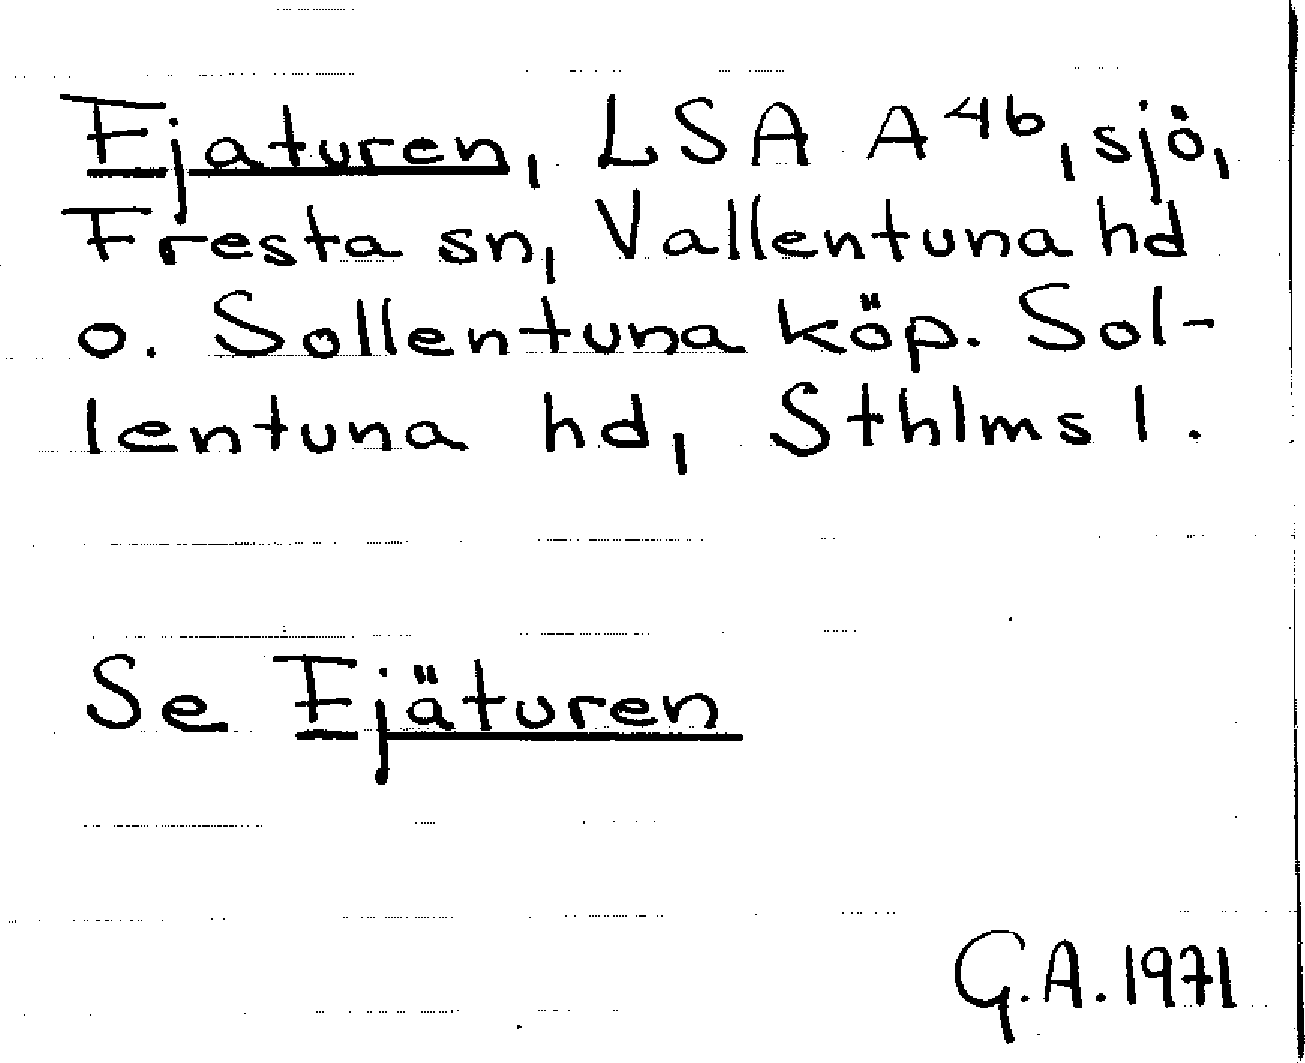 Fjaturen, LSA A⁴ᵇ, sjö,
Fresta sn, Vallentuna hd
o. Sollentuna köp. Sol-
lentuna hd, Sthlms l.
Se Fjäturen
G.A. 1971